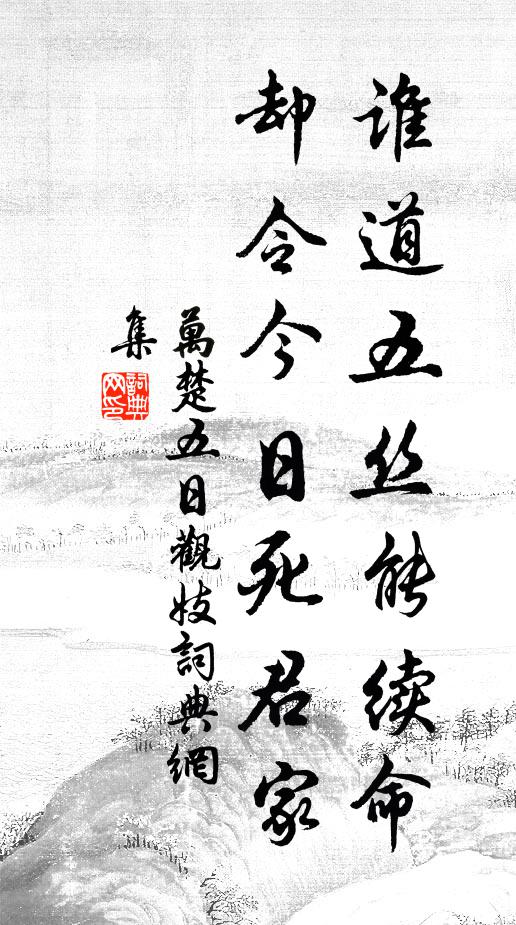 谁道五丝能续命
却令今日死君家
萬楚五日觀妓詞典網
集
詞典
网印